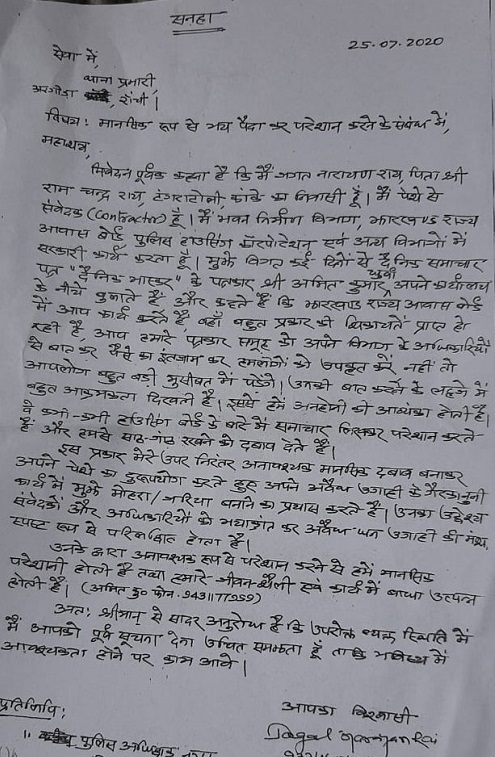 सनहा
25.07.2020
सेवा में,
थाना प्रभारी,
अरगोड़ा राँची।
विषय: मानसिक रूप से भय पैदा कर परेशान करने के संबंध में,
महाशय,
निवेदन पूर्वक कहना है कि मैं जगत नारायण राय, पिता श्री
राम चन्द्र राय, टंगराटोली कांके का निवासी हूँ। मैं पेशे से
संवेदक (Contractor) हूँ। मैं भवन निर्माण विभाग, झारखण्ड राज्य
आवास बोर्ड, पुलिस हाउसिंग कॉरपोरेशन एवं अन्य विभागों में
सरकारी कार्य करता हूँ। मुझे विगत कई दिनों से दैनिक समाचार
पत्र "दैनिक भास्कर" के पत्रकार श्री अमित कुमार, अपने कार्यालय
के नीचे बुलाते हैं और कहते हैं कि झारखण्ड राज्य आवास बोर्ड
में आप कार्य करते हैं वहाँ बहुत प्रकार की शिकायतें प्राप्त हो
रही है, आप हमारे पत्रकार समूह को अपने विभाग के अधिकारियों
से बात कर पैसे का इंतजाम कर हमलोगों को उपकृत करें नहीं तो
आपलोग बहुत बड़ी मुसीबत में पड़ेगें। उनकी बात करने के लहजे में
बहुत आक्रमकता दिखती है। इससे हमें अनहोनी की आशंका होती है।
वे कभी-कभी हाउसिंग बोर्ड के बारे में समाचार लिखकर परेशान करते
हैं और हमसे साठ-गांठ रखने का दबाव देते हैं।
इस प्रकार मेरे उपर निरंतर अनावश्यक मानसिक दबाव बनाकर
अपने पेशे का दुरूपयोग करते हुए अपने अवैध उगाही के गैरकानुनी
कार्य में मुझे मोहरा/जरिया बनाने का प्रयास करते हैं। उनका उद्देश्य
संवेदकों और अधिकारियों को भयाक्रांत कर अवैध धन उगाही की मंशा,
स्पष्ट रूप से परिलक्षित होता है।
उनके द्वारा अनावश्यक रूप से परेशान करने से हमें मानसिक
परेशानी होती है तथा हमारे जीवन-शैली एवं कार्य में बाधा उत्पन्न
होती है। (अमित कु० फोन. 9431177959)
अतः श्रीमान् से सादर अनुरोध है कि उपरोक्त स्थिति में
मैं आपको पूर्व सूचना देना उचित समझता हूँ ताकि भविष्य में
आवश्यकता होने पर काम आवे।
प्रतिलिपि:
आपका विश्वासी
Jagat Narayan Rai
पुलिस